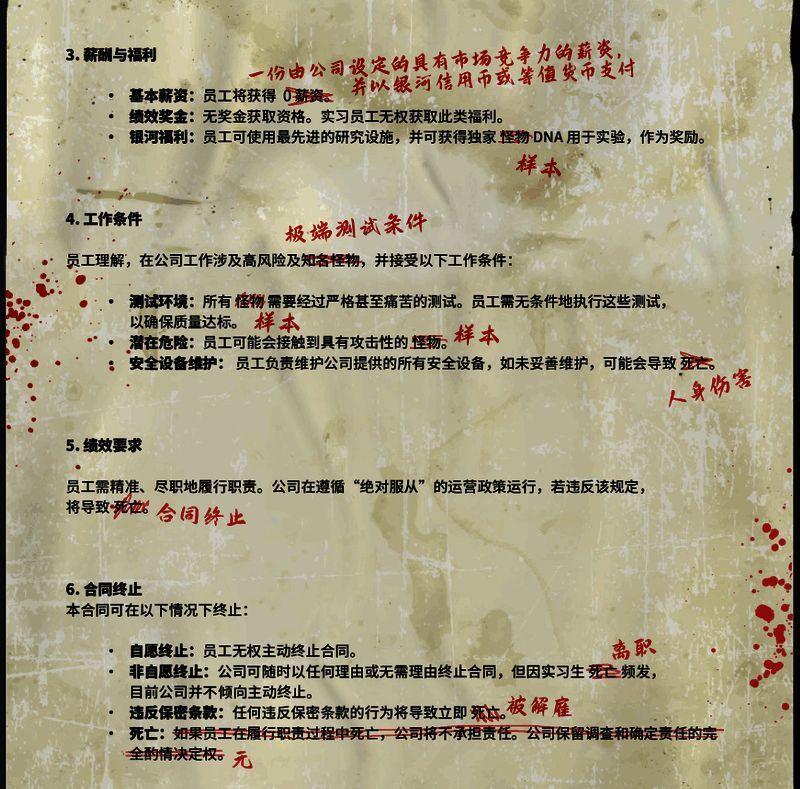 3. 薪酬与福利
一份由公司设定的具有市场竞争力的薪资，
并以银河信用币或等值货币支付
• 基本薪资：员工将获得 0薪资。
• 绩效奖金：无奖金获取资格。实习员工无权获取此类福利。
• 银河福利：员工可使用最先进的研究设施，并可获得独家 怪物 DNA 用于实验，作为奖励。
样本
4. 工作条件
极端测试条件
员工理解，在公司工作涉及高风险及知名怪物，并接受以下工作条件：
• 测试环境：所有 怪物 需要经过严格甚至痛苦的测试。员工需无条件地执行这些测试，
以确保质量达标。 样本
• 潜在危险：员工可能会接触到具有攻击性的 怪物。 样本
• 安全设备维护： 员工负责维护公司提供的所有安全设备，如未妥善维护，可能会导致 死亡。
人身伤害
5. 绩效要求
员工需精准、尽职地履行职责。公司在遵循“绝对服从”的运营政策运行，若违反该规定，
将导致 死亡。 合同终止
6. 合同终止
本合同可在以下情况下终止：
• 自愿终止：员工无权主动终止合同。
离职
• 非自愿终止：公司可随时以任何理由或无需理由终止合同，但因实习生 死亡 频发，
目前公司并不倾向主动终止。
• 违反保密条款：任何违反保密条款的行为将导致立即 死亡。 被解雇
• 死亡：如果员工在履行职责过程中死亡，公司将不承担责任。公司保留调查和确定责任的完
全酌情决定权。 元